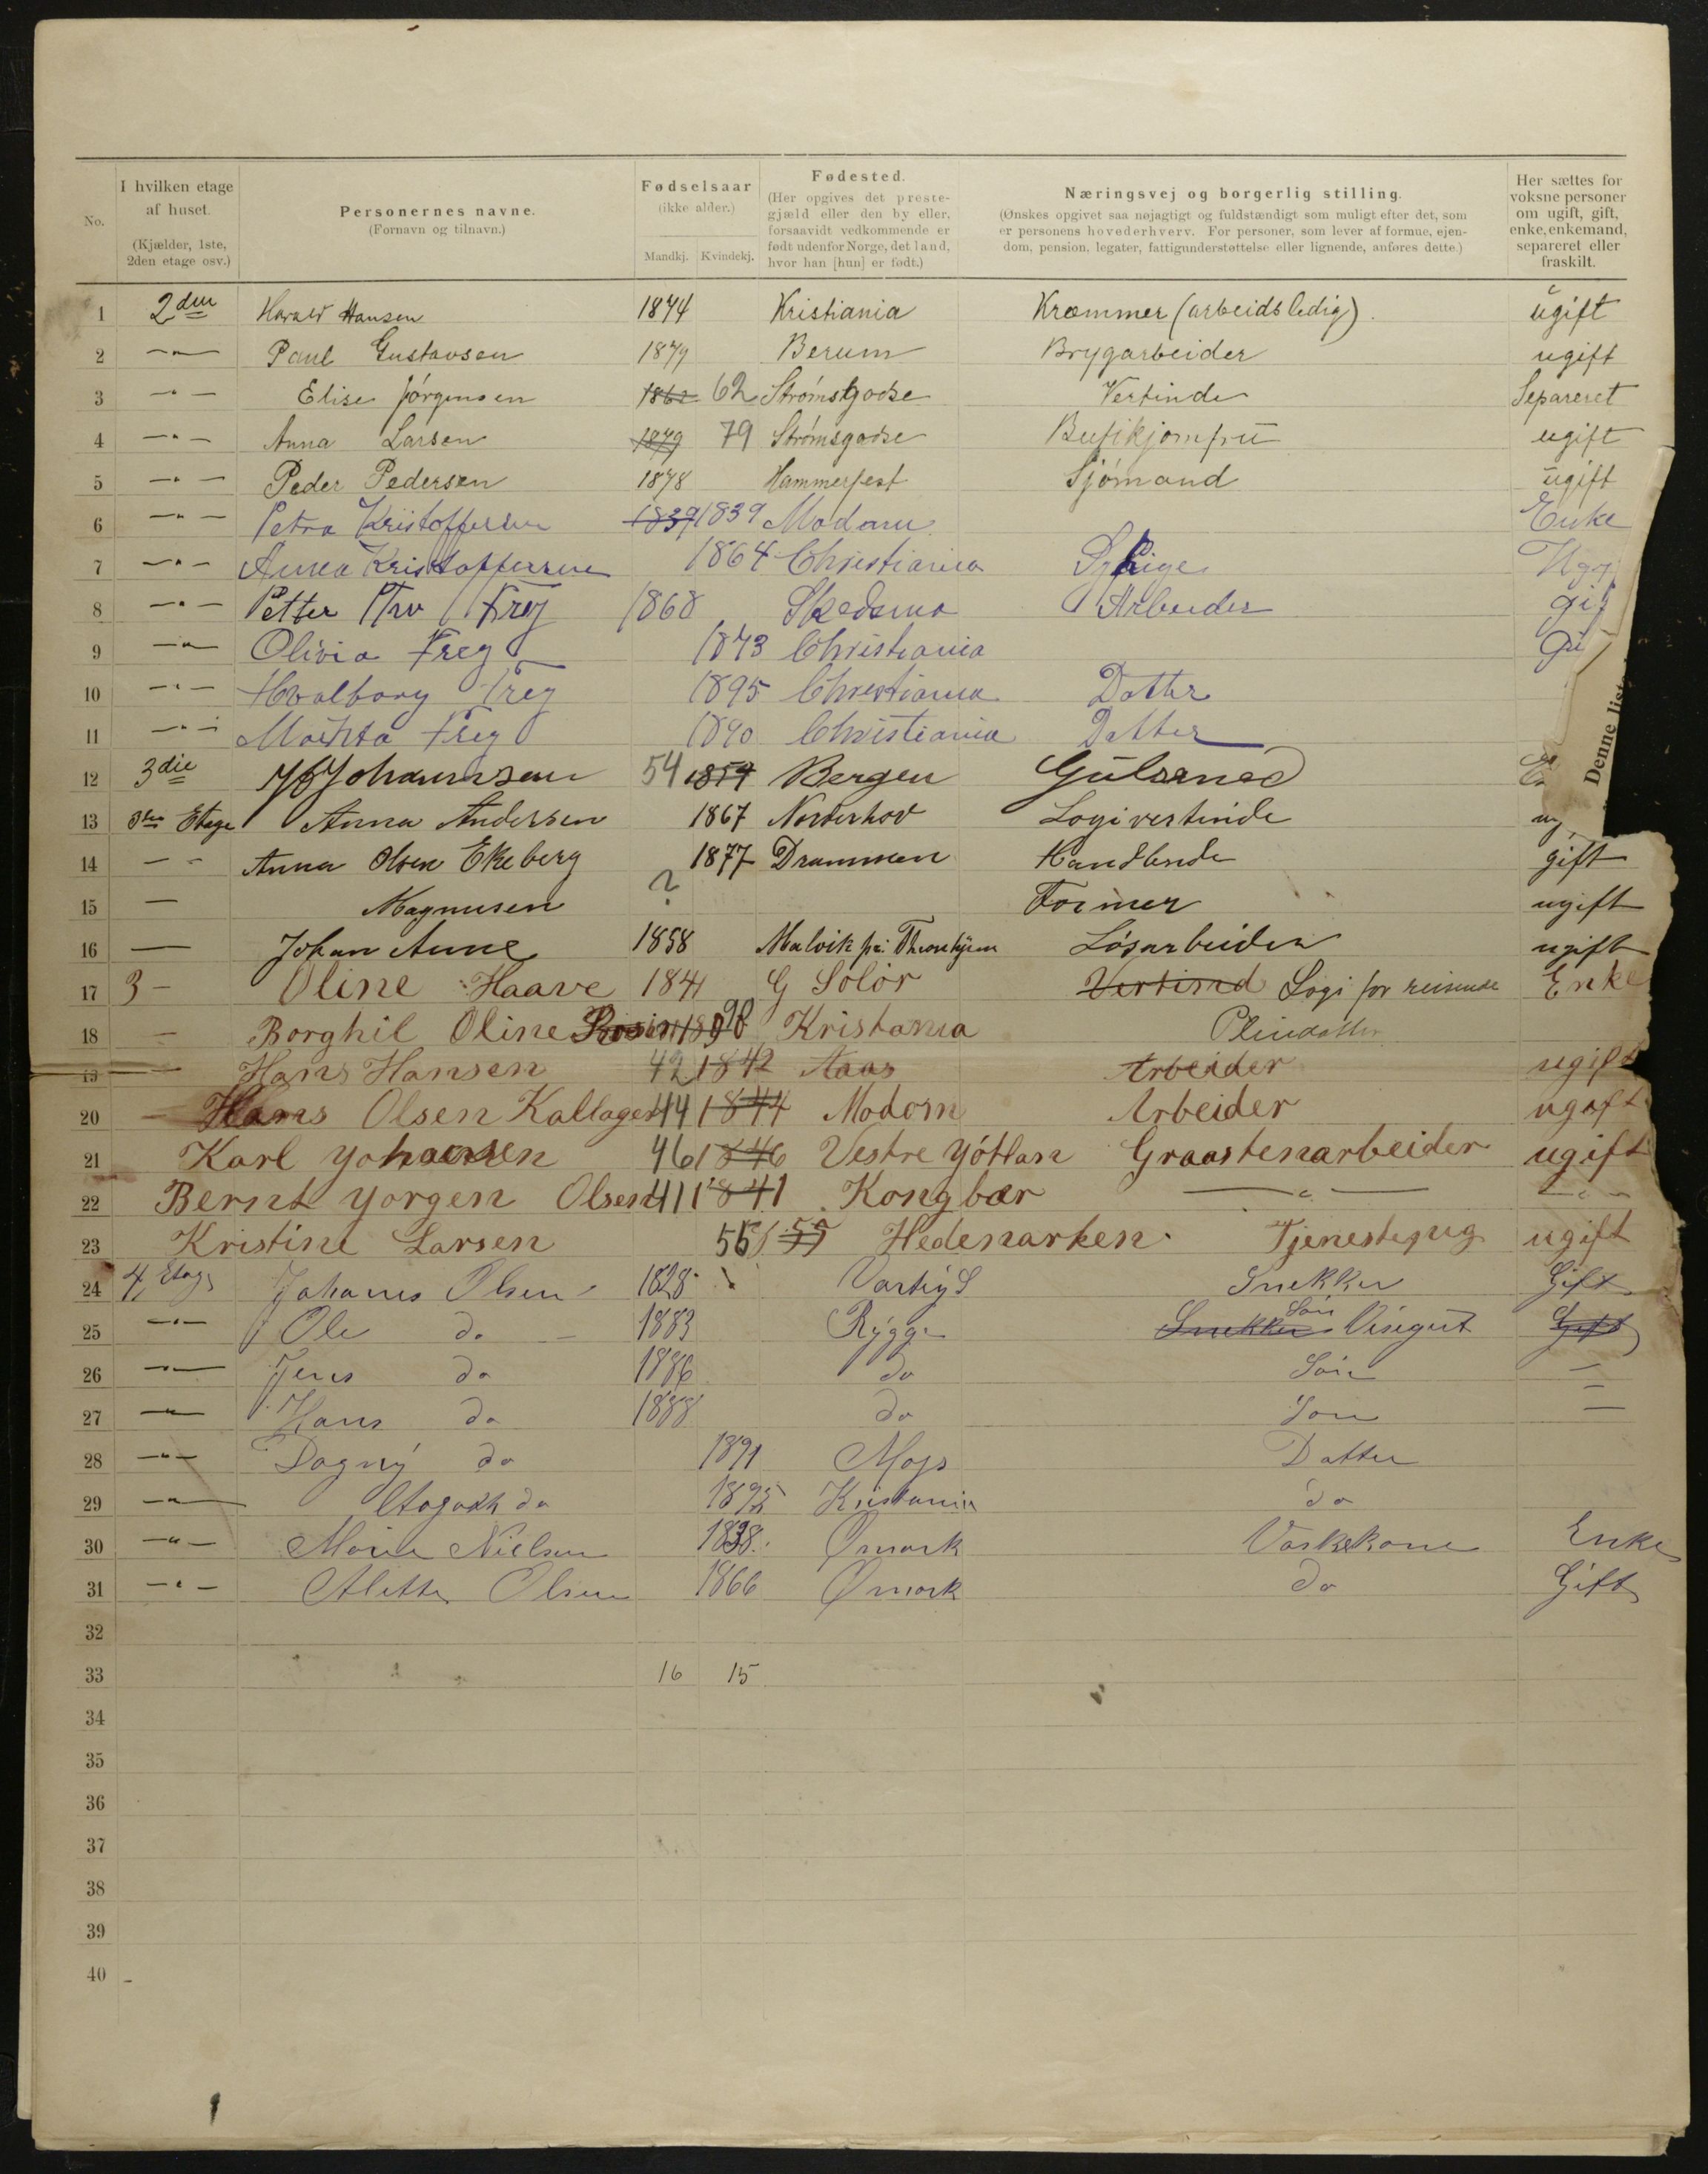 No.
I hvilken etage af huset.
(Kjælder, 1ste, 2den etage osv.)
Personernes navne.
(Fornavn og tilnavn.)
Fødselsaar
(ikke alder.)
Mandkj. Kvindekj.
Fødested.
(Her opgives det prestegjæld eller den by eller, forsaavidt vedkommende er født udenfor Norge, det land, hvor han [hun] er født.)
Næringsvej og borgerlig stilling.
(Ønskes opgivet saa nøjagtigt og fuldstændigt som muligt efter det, som er personens hovederhverv. For personer, som lever af formue, ejendom, pension, legater, fattigunderstøttelse eller lignende, anføres dette.)
Her sættes for voksne personer om ugift, gift, enke, enkemand, separeret eller fraskilt.
1 2den Harald Hansen 1874 Kristiania Kræmmer (arbeidsledig). ugift
2 —"— Paul Gustavsen 1879 Berum Brygarbeider ugift
3 —"— Elise Jørgensen 1862 62 Strømsgodse Vertinde Separeret
4 —"— Anna Larsen 1879 79 Strømsgodse ugift
5 —"— Peder Pedersen 1878 Hammerfest Sjømand ugift
6 —"— Petra Kristoffersen 1839 1839 Modum Enke
7 —"— Anna Kristoffersen 1864 Christiania
8 —"— Petter Frey 1868 Skedsmo Arbeider
9 —"— Olivia Frey 1873 Christiania
10 —"— Hvalborg Frey 1895 Christiania Datter
11 —"— Frey 1890 Christiania Datter
Denne liste
12 3die Johannsen 54 1854 Bergen Gulsmed
13 3die Etage Anna Andersen 1867 Norderhov Logivertinde
14 — " Anna Olsen Ekeberg 1877 Drammen Handlende gift
15 — Magnusen ? Former ugift
16 — Johan Aune 1858 Malvik pr. Throndhjem Løsarbeider ugift
17 3 — Oline Haave 1841 G Solør Vertined Logi for reisende Enke
18 – Borghil Oline 98 Kristania Pleiedatter
19 — Hans Hansen 42 1842 Aaas Arbeider ugift
20 — Hans Olsen Kallager 44 1844 Modom Arbeider ugift
21 Karl Yohansen 46 1846 Vestre Yøtlan Graastenarbeider ugift
22 Bernt Yorgen Olsen 41 1841 Kongbær —"— —"—
23 Kristine Larsen 55 55 Hedemarken Tjenestepig ugift
24 4 Etage Johanes Olsen 1828 Varteig Snekker Gift
25 —"— Ole do 1883 Rygge Snekker Søn Visegut Gift
26 —"— Jens do 1886 do Søn —
27 —"— Hans do 1888 do Søn —
28 —"— Dagny do 1891 Moss Datter
29 —"— do 1895 Kristania do
30 —"— Marie Nielsen 1838 Ømark Vaskekone Enke
31 —"— Alette Olsen 1866 Ømark do Gift
32
33 16 15
34
35
36
37
38
39
40